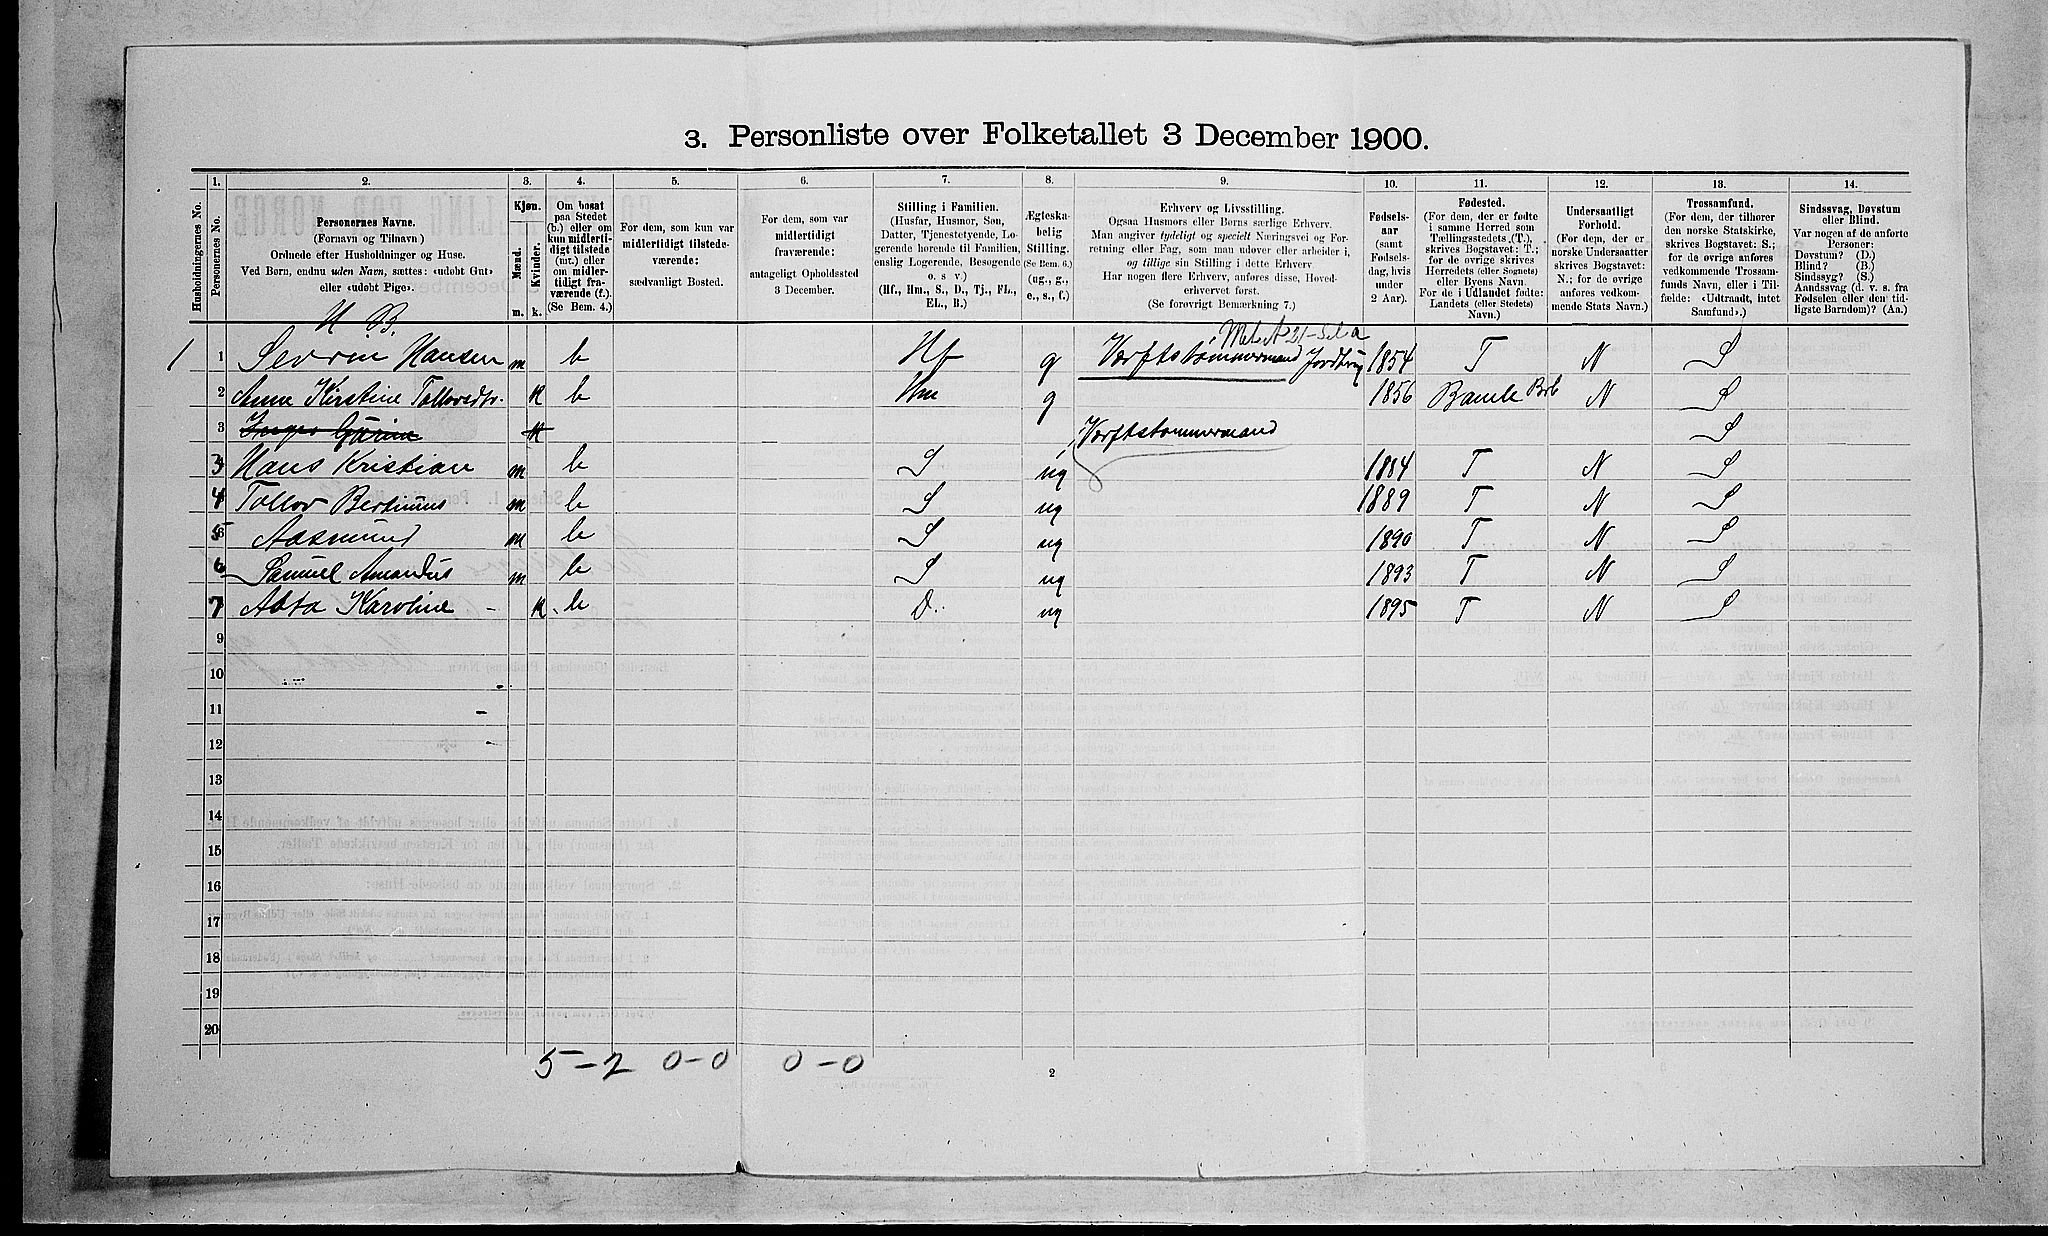 3. Personliste over Folketallet 3 December 1900.
1. 2. 3. 4. 5. 6. 7. 8. 9. 10. 11. 12. 13. 14.
Husholdningernes No.
Personernes No.
Personernes Navne.
(Fornavn og Tilnavn)
Ordnede efter Husholdninger og Huse.
Ved Børn, endnu uden Navn, sættes: «udøbt Gut»
eller «udøbt Pige».
Kjøn.
Mænd.
Kvinder.
m. k.
Om bosat
paa Stedet
(b.) eller om
kun midlerti-
digt tilstede
(mt.) eller
om midler-
tidigt fra-
værende (f.).
(Se Bem. 4.)
For dem, som kun var
midlertidigt tilstede-
værende:
sædvanligt Bosted.
For dem, som var
midlertidigt
fraværende:
antageligt Opholdssted
3 December.
Stilling i Familien.
(Husfar, Husmor, Søn,
Datter, Tjenestetyende, Lo-
gerende hørende til Familien,
enslig Logerende, Besøgende
o. s v.)
(Hf., Hm., S., D., Tj., FL.,
EL., B.)
Ægteska-
belig
Stilling.
(Se Bem. 6.)
(ug., g.,
e., s., f.)
Erhverv og Livsstilling.
Ogsaa Husmors eller Børns særlige Erhverv.
Man angiver tydeligt og specielt Næringsvei og For-
retning eller Fag, som man udøver eller arbeider i,
og tillige sin Stilling i dette Erhverv.
Har nogen flere Erhverv, anføres disse, Hoved-
erhvervet først.
(Se forøvrigt Bemærkning 7.)
Fødsels-
aar
(samt
Fødsels-
dag, hvis
under
2 Aar).
Fødested.
(For dem, der er fødte
i samme Herred som
Tællingsstedets (T.),
skrives Bogstavet: T.;
for de øvrige skrives
Herredets (eller Sognets)
eller Byens Navn.
For de i Udlandet fødte:
Landets (eller Stedets)
Navn.)
Undersaatligt
Forhold.
(For dem, der er
norske Undersaatter
skrives Bogstavet:
N.; for de øvrige
anføres vedkom-
mende Stats Navn.)
Trossamfund.
(For dem, der tilhører
den norske Statskirke,
skrives Bogstavet: S.;
for de øvrige anføres
vedkommende Trossam-
funds Navn, eller i Til-
fælde: «Udtraadt, intet
Samfund».)
Sindssvag, Døvstum
eller Blind.
Var nogen af de anførte
Personer:
Døvstum? (D.)
Blind? (B.)
Sindssyg? (S.)
Aandssvag (d. v. s. fra
Fødselen eller den tid-
ligste Barndom)? (Aa.)
1 1 Sevrin Hansen m b Hf g Verftstømmermand 1854 T N S
2 Anne Kirstine k b Hm g 1856 Bamle N S
3 k Verftstømmermand S
3 Hans Kristian m b S ug 1884 T N S
4 m b S ug 1889 T N S
5 Aasmund m b S ug 1890 T N S
6 Samuel Amandus m b S ug 1893 T N S
7 Karoline k b D. ug 1895 T N S
9
10
11
12
13
14
15
16
17
18
19
20
5-2 0-0 0-0
2